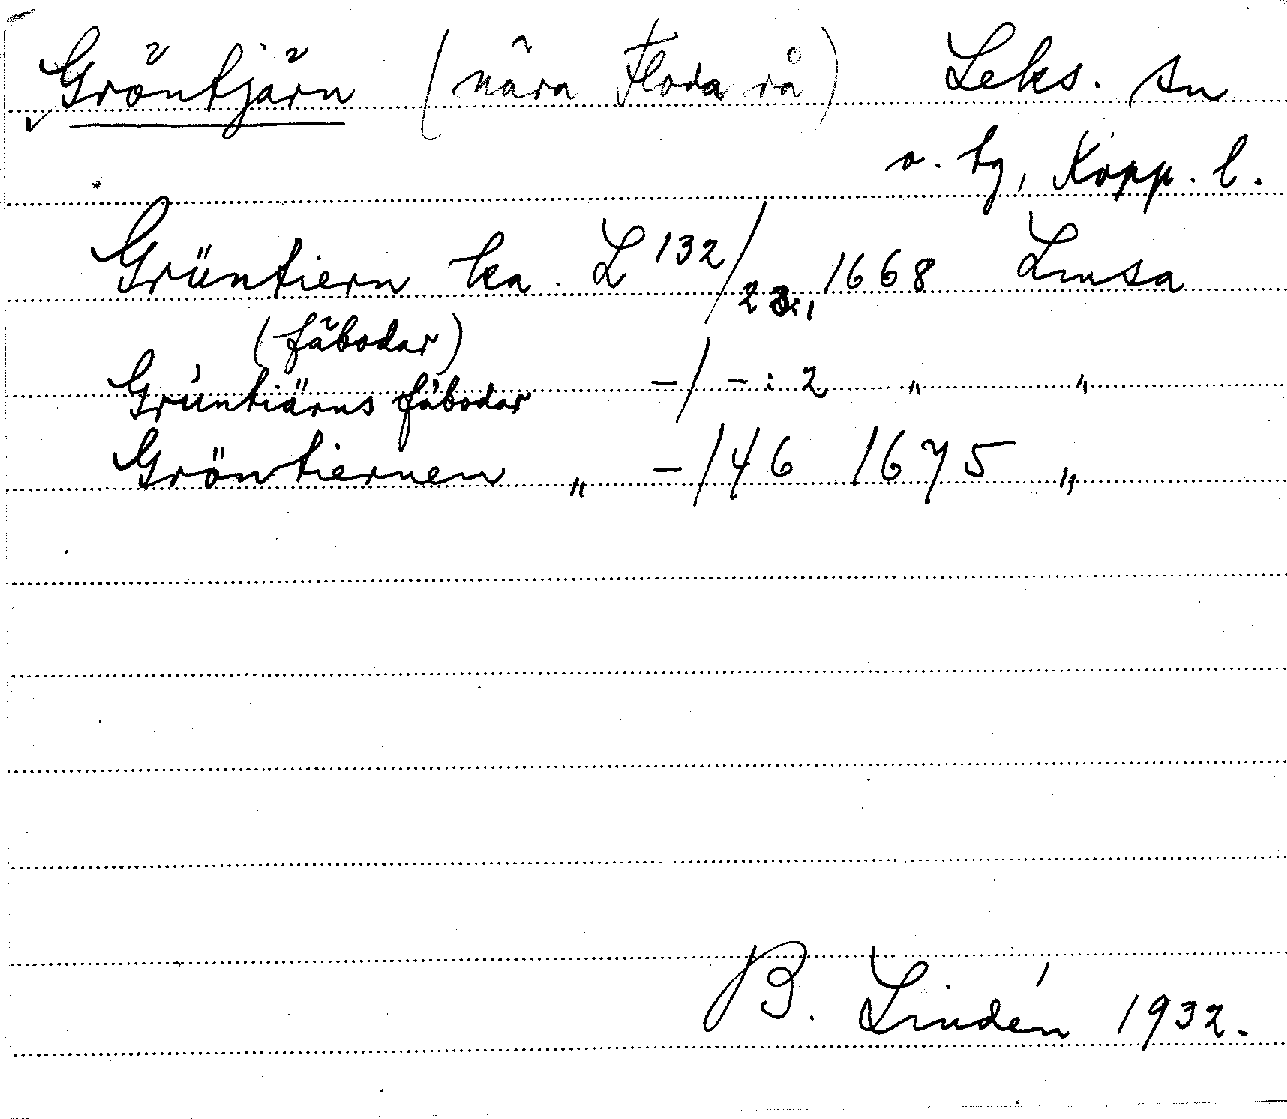 Gröntjärn (nära Floda rå) Leks. sn
o. tg, Kopp. l.
Grüntiern ka. L 132/23:1 1668 Lmsa
(fäbodar)
Grüntiärns fäbodar -/-:2 " "
Gröntiernen " -/46 1675 "
B. Lindén 1932.